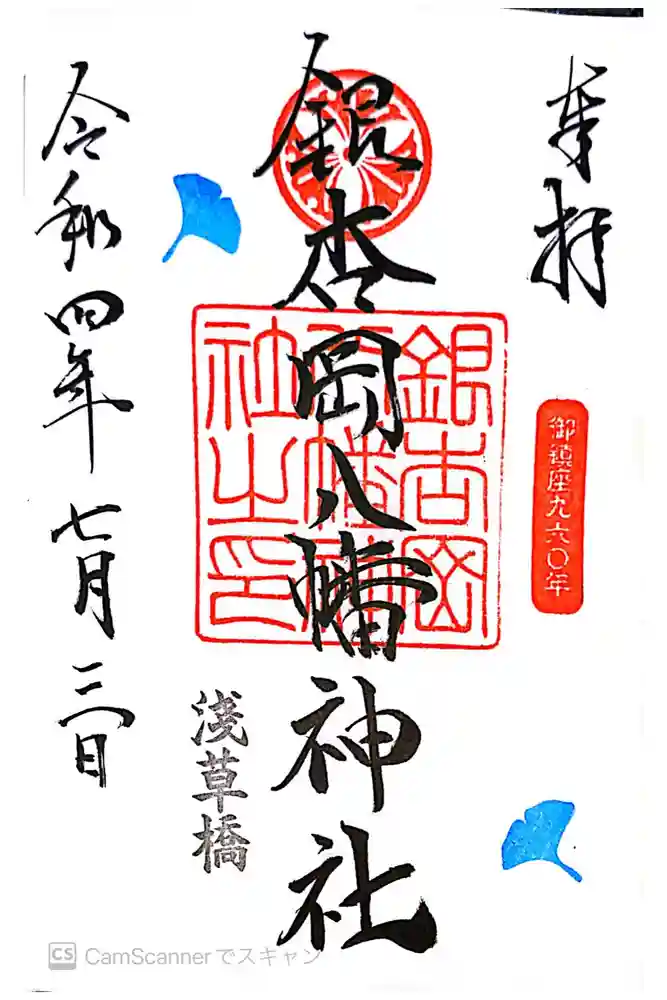 奉拝
御鎮座九六〇年
銀杏岡八幡神社
銀杏岡八幡神社之印
浅草橋
令和四年七月三日
CS CamScannerでスキャン